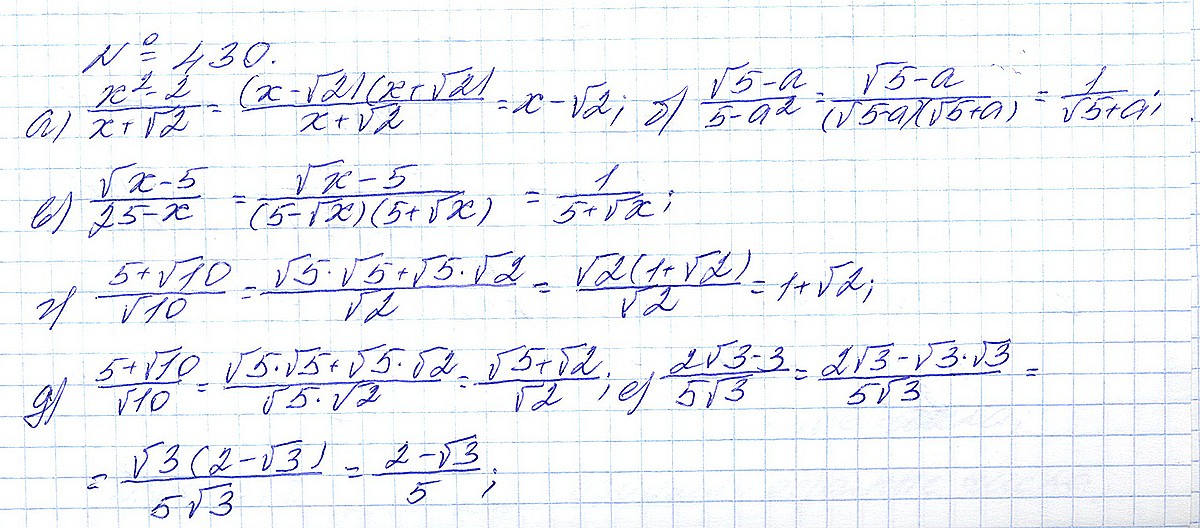 № 430.
а) (x² - 2)/(x + √2) = ((x - √2)(x + √2))/(x + √2) = x - √2; б) (√5 - a)/(5 - a²) = (√5 - a)/((√5 - a)(√5 + a)) = 1/(√5 + a);
в) (√x - 5)/(25 - x) = (√x - 5)/((5 - √x)(5 + √x)) = 1/(5 + √x);
г) (5 + √10)/√10 = (√5·√5 + √5·√2)/√2 = (√2(1 + √2))/√2 = 1 + √2;
д) (5 + √10)/√10 = (√5·√5 + √5·√2)/(√5·√2) = (√5 + √2)/√2; е) (2√3 - 3)/(5√3) = (2√3 - √3·√3)/(5√3) =
= (√3(2 - √3))/(5√3) = (2 - √3)/5;